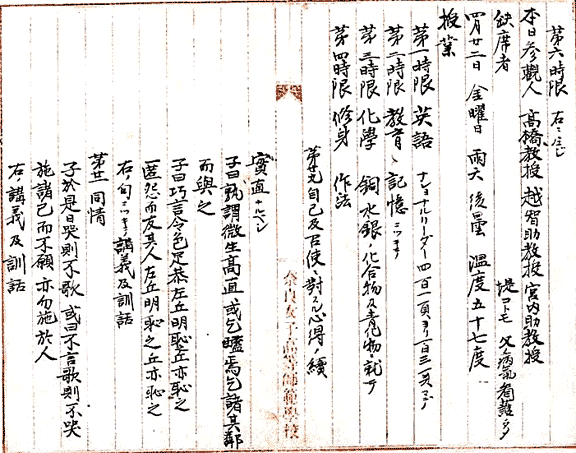 第六時限 右ニ同ジ
本日参觀人 高橋教授 越智助教授 宮内助教授
缺席者 堤コトモ 父病氣看護
四月廿二日 金曜日 雨天後曇 温度五十七度
授業
第一時限 英語 ナショナルリーダー四 百一頁ヨリ百三頁マデ
第二時限 教育 記憶ニツキテ
第三時限 化學 銅水銀ノ化合物及青化物ニ就テ
第四時限 修身 作法
第廿 自己及召使ニ對スル心得ノ續
奈良女子高等師範學校
實直ナルベシ
子曰孰謂微生高直或乞醯焉乞諸其鄰
而與之
子曰巧言令色足恭左丘明恥之丘亦恥之
匿怨而友其人左丘明恥之丘亦恥之
右ノ句ニツキテ講義及訓話
第廿一 同情
子於是日哭則不歌 或曰不言歌則不哭
施諸己而不願亦勿施於人
右ノ講義及訓話